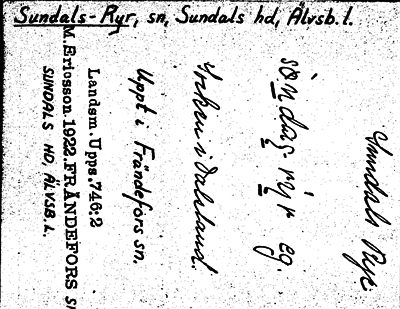 Sundals-Ryr, sn, Sundals hd, Älvsb. l.
Sundals Ryr
Socken i Dalsland.
Uppt i Frändefors sn.
Landsm. Upps. 746:2
M. Ericsson 1922. FRÄNDEFORS
SUNDALS HD, ÄLVSB. L.